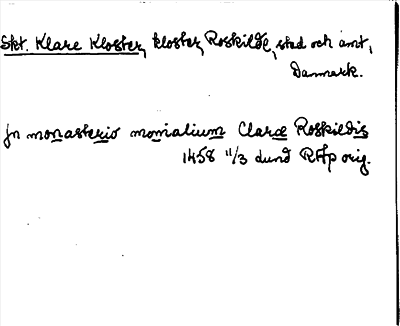 Skt. Klare Kloster, kloster, Roskilde, stad och amt,
Danmark.
In monasterio monialium Claræ Roskildis
1458 11/3 Lund RAp orig.